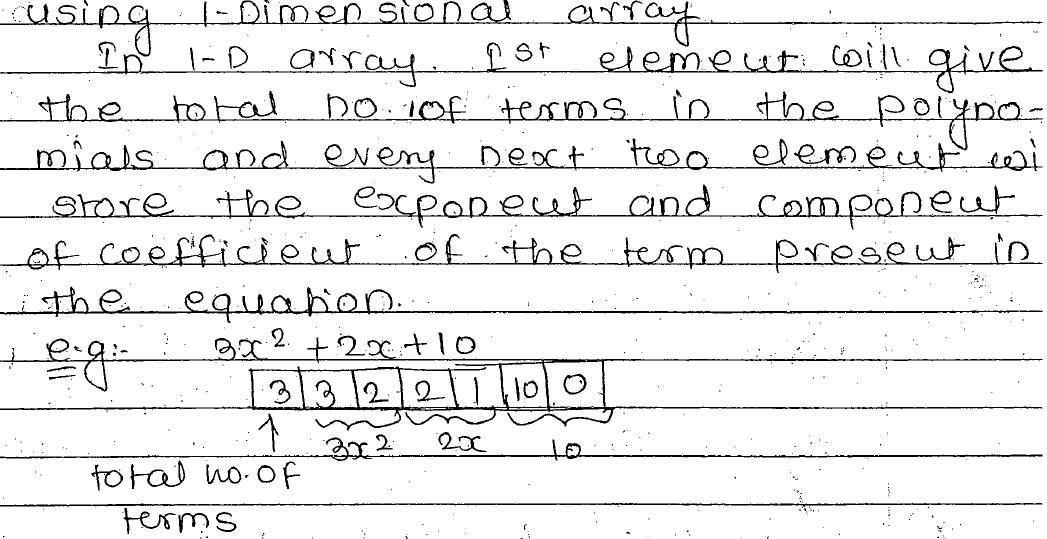 using 1-Dimensional array.
In 1-D array. 1st element will give
the total no. of terms in the polyno-
mials and every next two element wi
store the exponent and component
of coefficient of the term present in
the equation.
e.g:- 3x² + 2x + 10
3 3 2 2 1 10 0
3x² 2x 10
total no. of
terms